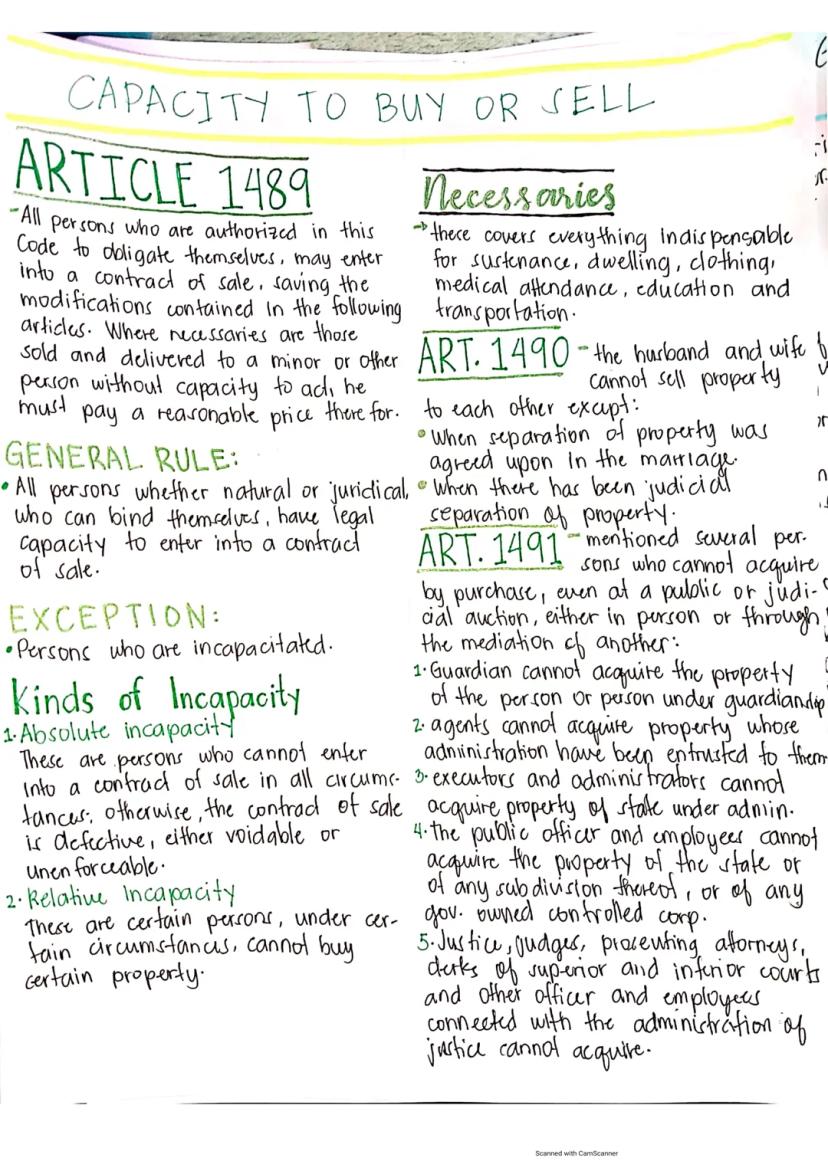 CAPACITY TO BUY OR SELL
ARTICLE 1489
-All persons who are authorized in this
Code to obligate themselves, may enter
into a contract of sale, saving the
modifications contained in the following
articles. Where necessaries are those
sold and delivered to a minor or other
person without capacity to act, he
must pay a reasonable price there for.
GENERAL RULE:
• All persons whether natural or juridical,
who can bind themselves, have legal
capacity to enter into a contract
of sale.
EXCEPTION:
• Persons who are incapacitated.
Kinds of Incapacity
1. Absolute incapacity
These are persons who cannot enter
into a contract of sale in all circums-
tances, otherwise, the contract of sale
is defective, either voidable or
unenforceable.
2. Relative Incapacity
These are certain persons, under cer-
tain circumstances, cannot buy
certain property.
Necessaries
→ these covers everything indispensable
for sustenance, dwelling, clothing,
medical attendance, education and
transportation.
ART. 1490 - the husband and wife
cannot sell property
to each other except:
• When separation of property was
agreed upon in the marriage.
• When there has been judicial
separation of property.
ART. 1491 - mentioned several per-
sons who cannot acquire
by purchase, even at a public or judi-
cial auction, either in person or through
the mediation of another:
1. Guardian cannot acquire the property
of the person or person under guardianship
2. agents cannot acquire property whose
administration have been entrusted to them
3. executors and administrators cannot
acquire property of state under admin.
4. the public officer and employees cannot
acquire the property of the state or
of any subdivision thereof, or of any
gov. owned controlled corp.
5. Justice, judges, procenting attorneys,
clerks of superior and inferior courts
and other officer and employees
connected with the administration of
justice cannot acquire.
Scanned with CamScanner